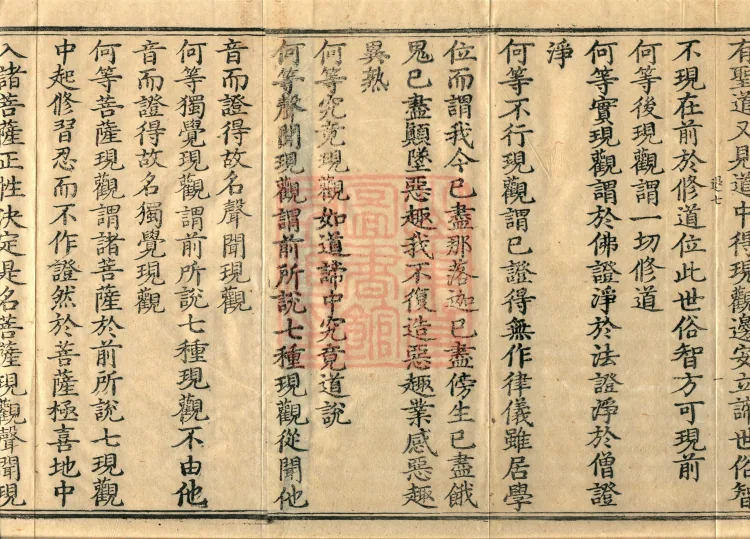 有聖道又見道中得現觀邊安立諦世俗智
不現在前於修道位此世俗智方可現前
何等後現觀謂一切修道
何等實現觀謂於佛證淨於法證淨於僧證
淨
何等不行現觀謂已證得無作律儀雖居學
位而謂我今已盡那落迦已盡傍生已盡餓
鬼已盡顛墜惡趣我不復造惡趣業感惡趣
異熟
何等究竟現觀如道諦中究竟道說
何等聲聞現觀謂前所說七種現觀從聞他
音而證得故名聲聞現觀
何等獨覺現觀謂前所說七種現觀不由他
音而證得故名獨覺現觀
何等菩薩現觀謂諸菩薩於前所說七現觀
中起修習忍而不作證然於菩薩極喜地中
入諸菩薩正性決定是名菩薩現觀聲聞現